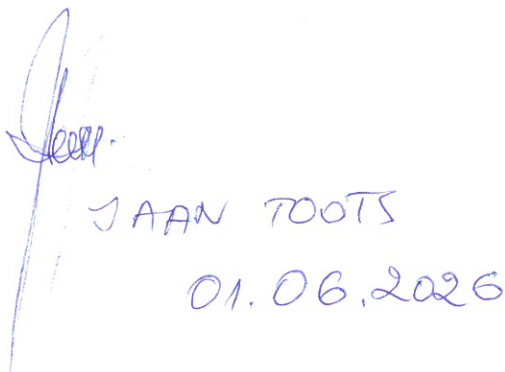 JAAN TOOTS
01.06.2026